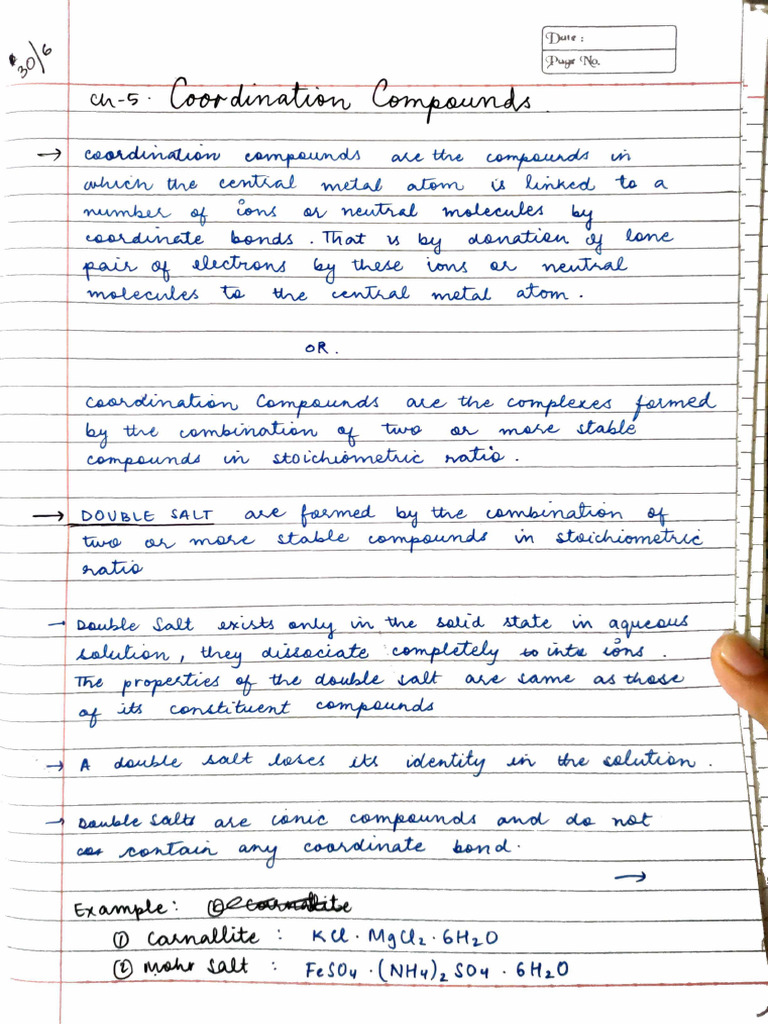 30/6
Date :
Page No.
Ch-5. Coordination Compounds
→ Coordination compounds are the compounds in
which the central metal atom is linked to a
number of ions or neutral molecules by
coordinate bonds. That is by donation of lone
pair of electrons by these ions or neutral
molecules to the central metal atom.
OR.
Coordination Compounds are the complexes formed
by the combination of two or more stable
compounds in stoichiometric ratio.
→ DOUBLE SALT are formed by the combination of
two or more stable compounds in stoichiometric
ratio
→ Double Salt exists only in the solid state in aqueous
solution, they dissociate completely to into ions.
The properties of the double salt are same as those
of its constituent compounds
→ A double salt loses its identity in the solution.
→ Double Salts are ionic compounds and do not
contain any coordinate bond.
→
Example:
① Carnallite : KCl · MgCl₂ · 6H₂O
② Mohr Salt : FeSO₄ · (NH₄)₂ SO₄ · 6H₂O